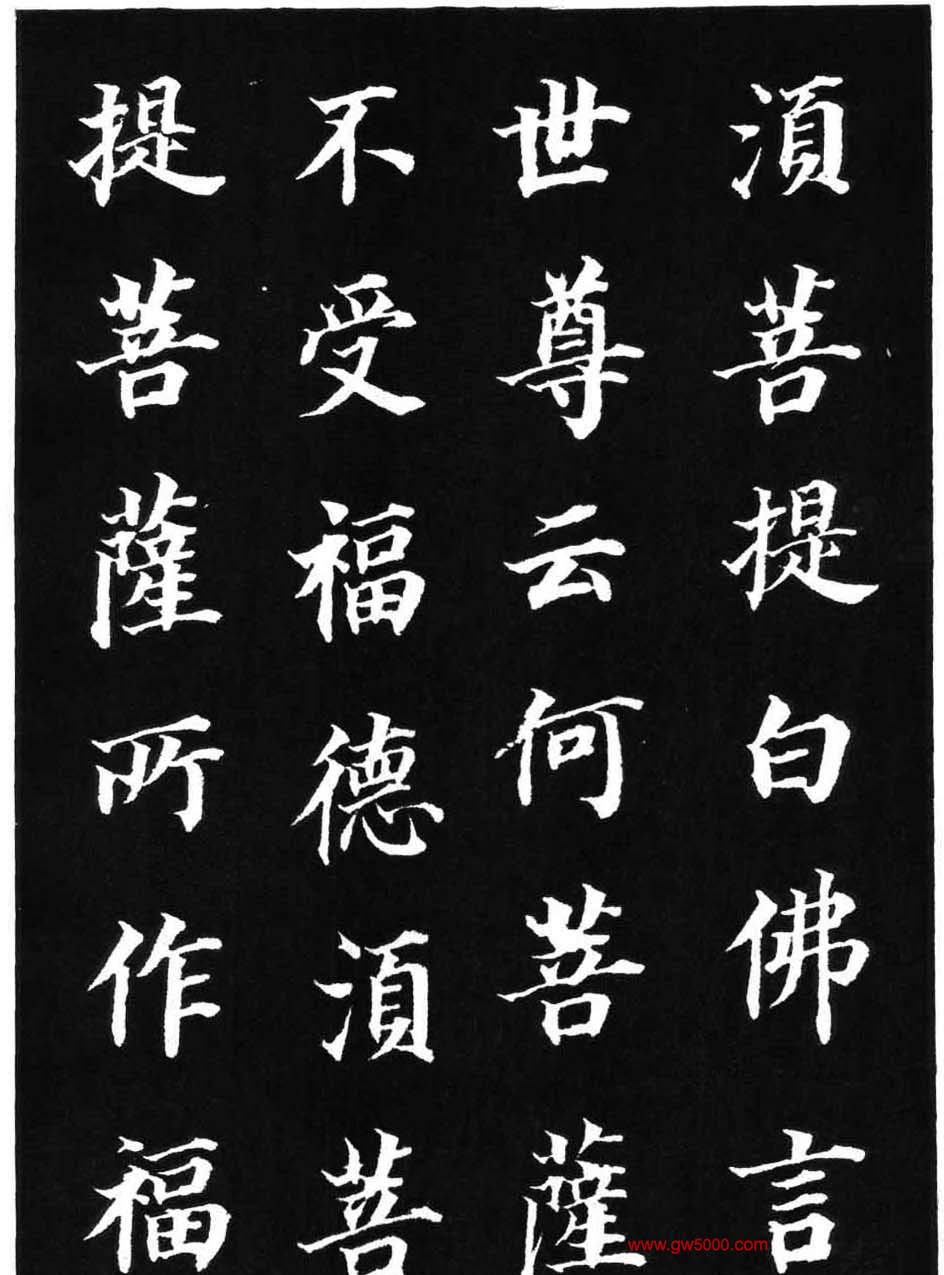 湏菩提白佛言
世尊云何菩薩
不受福德湏菩
提菩薩所作福
www.gw5000.com